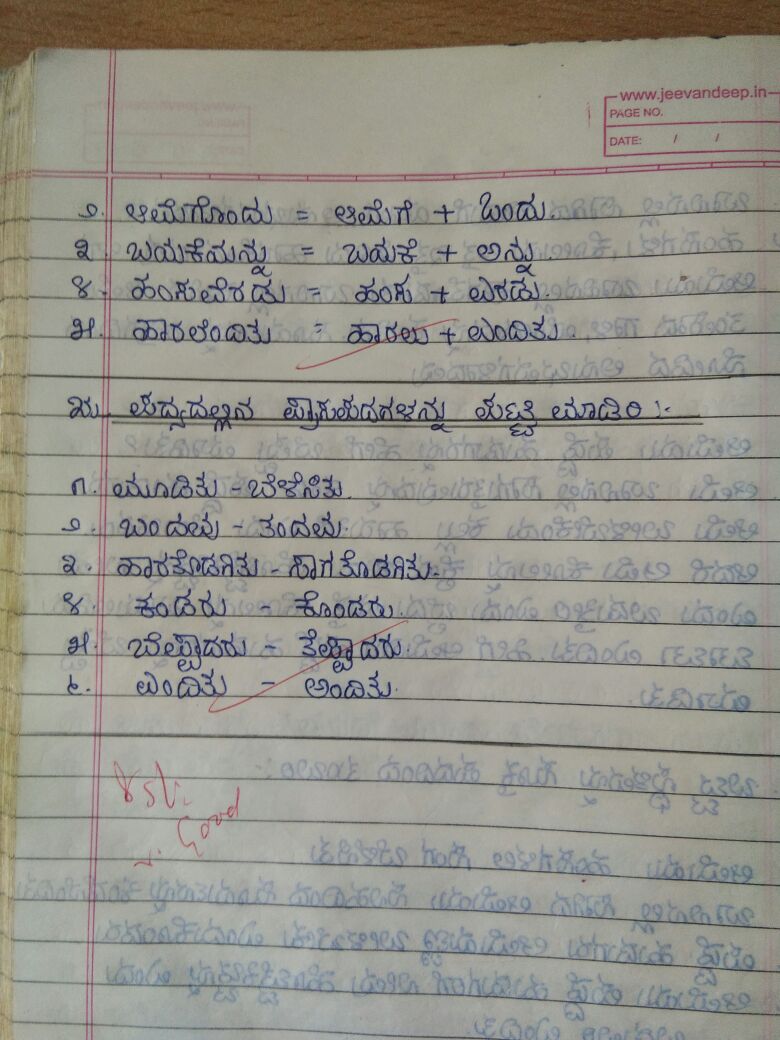 www.jeevandeep.in
PAGE NO.
DATE: / /
೨. ಆಮೆಗೊಂದು = ಆಮೆಗೆ + ಒಂದು.
೩. ಬಯಕೆಯನ್ನು = ಬಯಕೆ + ಅನ್ನು
೪. ಹಂಸುವೆರಡು = ಹಂಸು + ಎರಡು.
೫. ಹಾರಲೆಂದಿತು = ಹಾರಲು + ಎಂದಿತು.
ಪದ್ಯದಲ್ಲಿನ ಪ್ರಾಸಪದಗಳನ್ನು ಪಟ್ಟಿ ಮಾಡಿರಿ :-
೧. ಮೂಡಿತು - ಬೆಳೆಸಿತು.
೨. ಬಂದವು - ತಂದವು.
೩. ಹಾರತ್ತೊಡಗಿತು - ಸಾಗತೊಡಗಿತು.
೪. ಕಂಡರು - ಕೊಂಡರು.
೫. ಬೇಪ್ಪಾದರು - ತೇಪ್ಪಾದರು.
೬. ಎಂದಿತು - ಅಂದಿತು.
v. Good